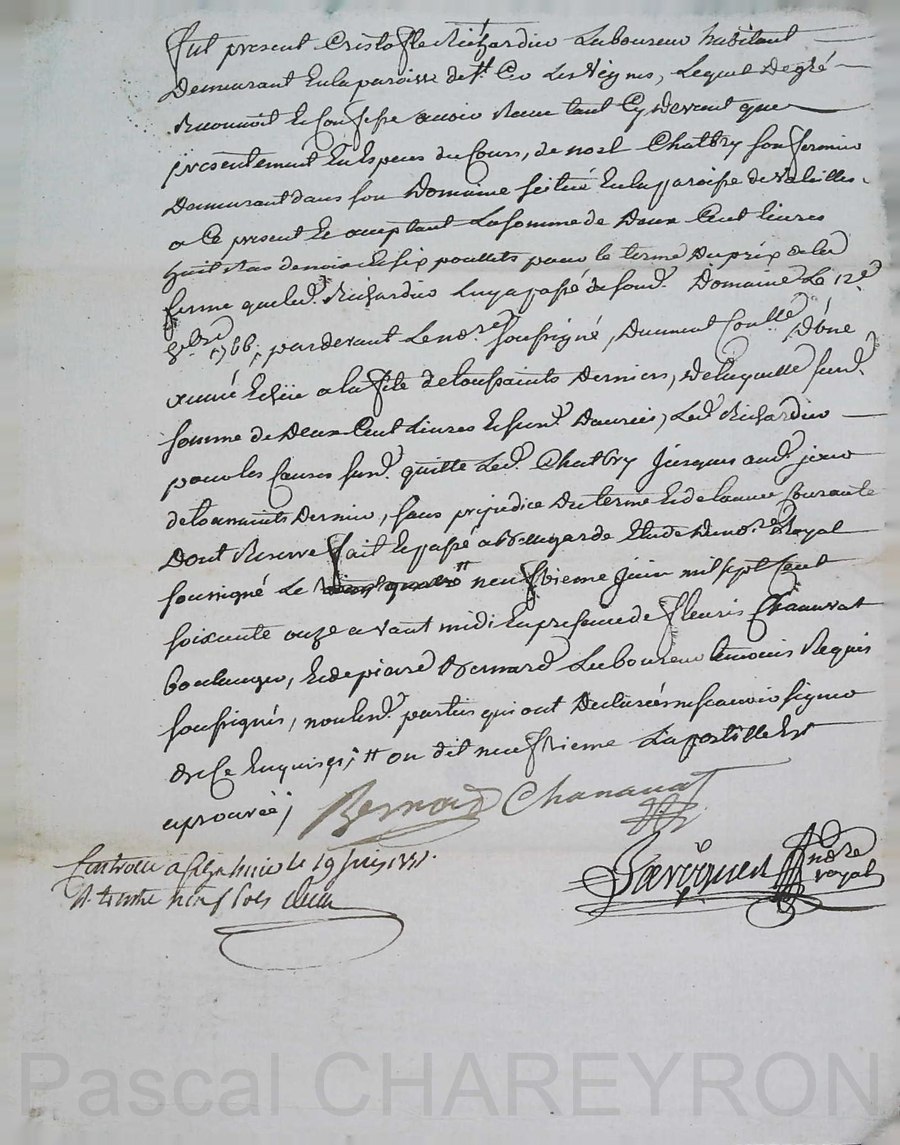 Fut present Cristofle Richardier Laboureur habitant
Demeurant En la paroisse de St. Cir Les Vignes, Lequel De gré
Reconnoit Et Confesse avoir Reçu tant Cy devant que
presentement En Espèces du Cours, de noel Chatbry son fermier
Demeurant dans son Domaine scitué En la paroisse de Valeilles
a Ce present Et acceptant La somme de Deux Cent Livres
huit Et six poullets pour le terme Du prix de la
ferme que led. Richardier Luy a passé de sond. Domaine Le 12e
8bre 1766, par devant Le nore soussigné, Duement Conllé, D'une
année Echüe a la fete de toussaints Derniers, De laquelle susd.
somme de Deux Cent Livres Et susd. Danrées, Led. Richardier
pour les Causes susd. quitte Led. Chatbry Jusques aud. jour
de toussaints Dernier, sans prejudice Du terme Et de Lannée Courante
Dont Reserve fait Et passé a Bellegarde Etude Du nore Royal
soussigné Le vingt quatre neufvieme Juin mil sept Cent
soixante onze avant midi En presence de fleuris Chanavat
boulanger, Et de pierre Bernard Laboureur temoins Requis
soussignés, non lesd. parties qui ont Declarées ne scavoir signer
de Ce Enquises; ou dit neufvieme La postille Est
aprouvée;
Bernard Chanavat
nore royal
Controllé à le 19 Juin 1771.
R. trente neuf sols